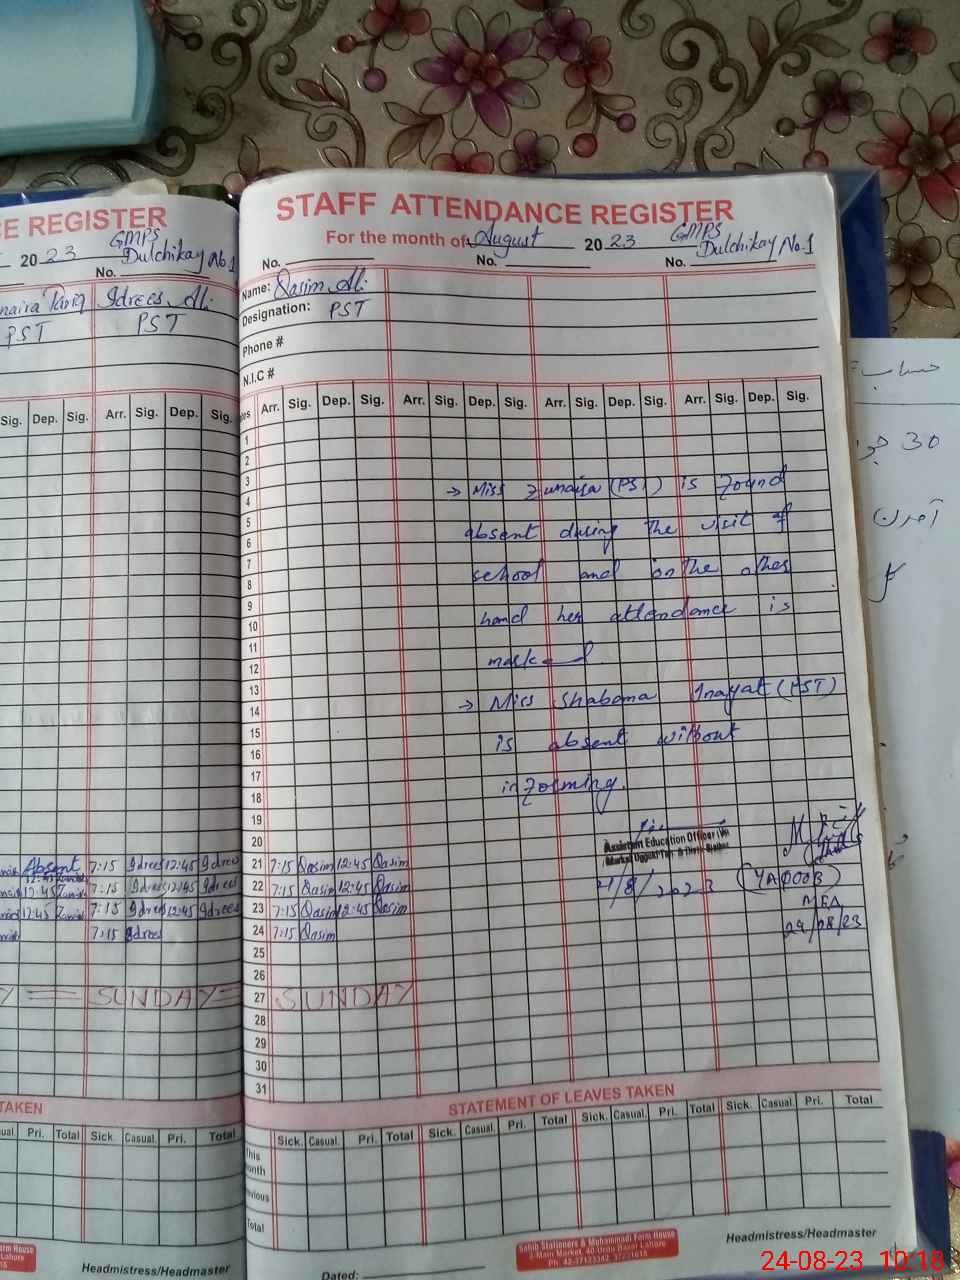 CE REGISTER
20 23 GMPS
Dulchikay No.1
No.
naira Tariq Idrees Ali
PST PST
Sig. Dep. Sig. Arr. Sig. Dep. Sig.
Absent 7:15 Idrees 12:45 Idrees
12:45 7:15 Idrees 12:45 Idrees
12:45 7:15 Idrees 12:45 Idrees
7:15 Idrees
SUNDAY
TAKEN
Pri. Total Sick. Casual. Pri. Total
Headmistress/Headmaster
STAFF ATTENDANCE REGISTER
For the month of August 20 23 GMPS
Dulchikay No.1
No. No. No.
Name: Qasim Ali
Designation: PST
Phone #
N.I.C #
Arr. Sig. Dep. Sig. Arr. Sig. Dep. Sig. Arr. Sig. Dep. Sig. Arr. Sig. Dep. Sig.
1
2
3
4 → Miss Zunaira (PST) is found
5
6 absent during the visit of
7
8 school and on the other
9
10 hand her attendance is
11
12 marked
13
14 → Miss Shabana Inayat (PST)
15
16 is absent without
17
18 informing.
19
20 Assistant Education Officer
21 7:15 Qasim 12:45 Qasim
22 7:15 Qasim 12:45 Qasim 21/8/2023 (YAQOOB)
23 7:15 Qasim 12:45 Qasim MEA
24 7:15 Qasim 24/08/23
25
26
27 SUNDAY
28
29
30
31
STATEMENT OF LEAVES TAKEN
Sick. Casual. Pri. Total Sick. Casual. Pri. Total Sick. Casual. Pri. Total Sick. Casual. Pri. Total
This
month
Total
Sahib Stationers & Muhammadi Form House
2-Main Market, 40-Urdu Bazar Lahore
Headmistress/Headmaster
Dated:
حساب
30
آمدن
24-08-23 10:18